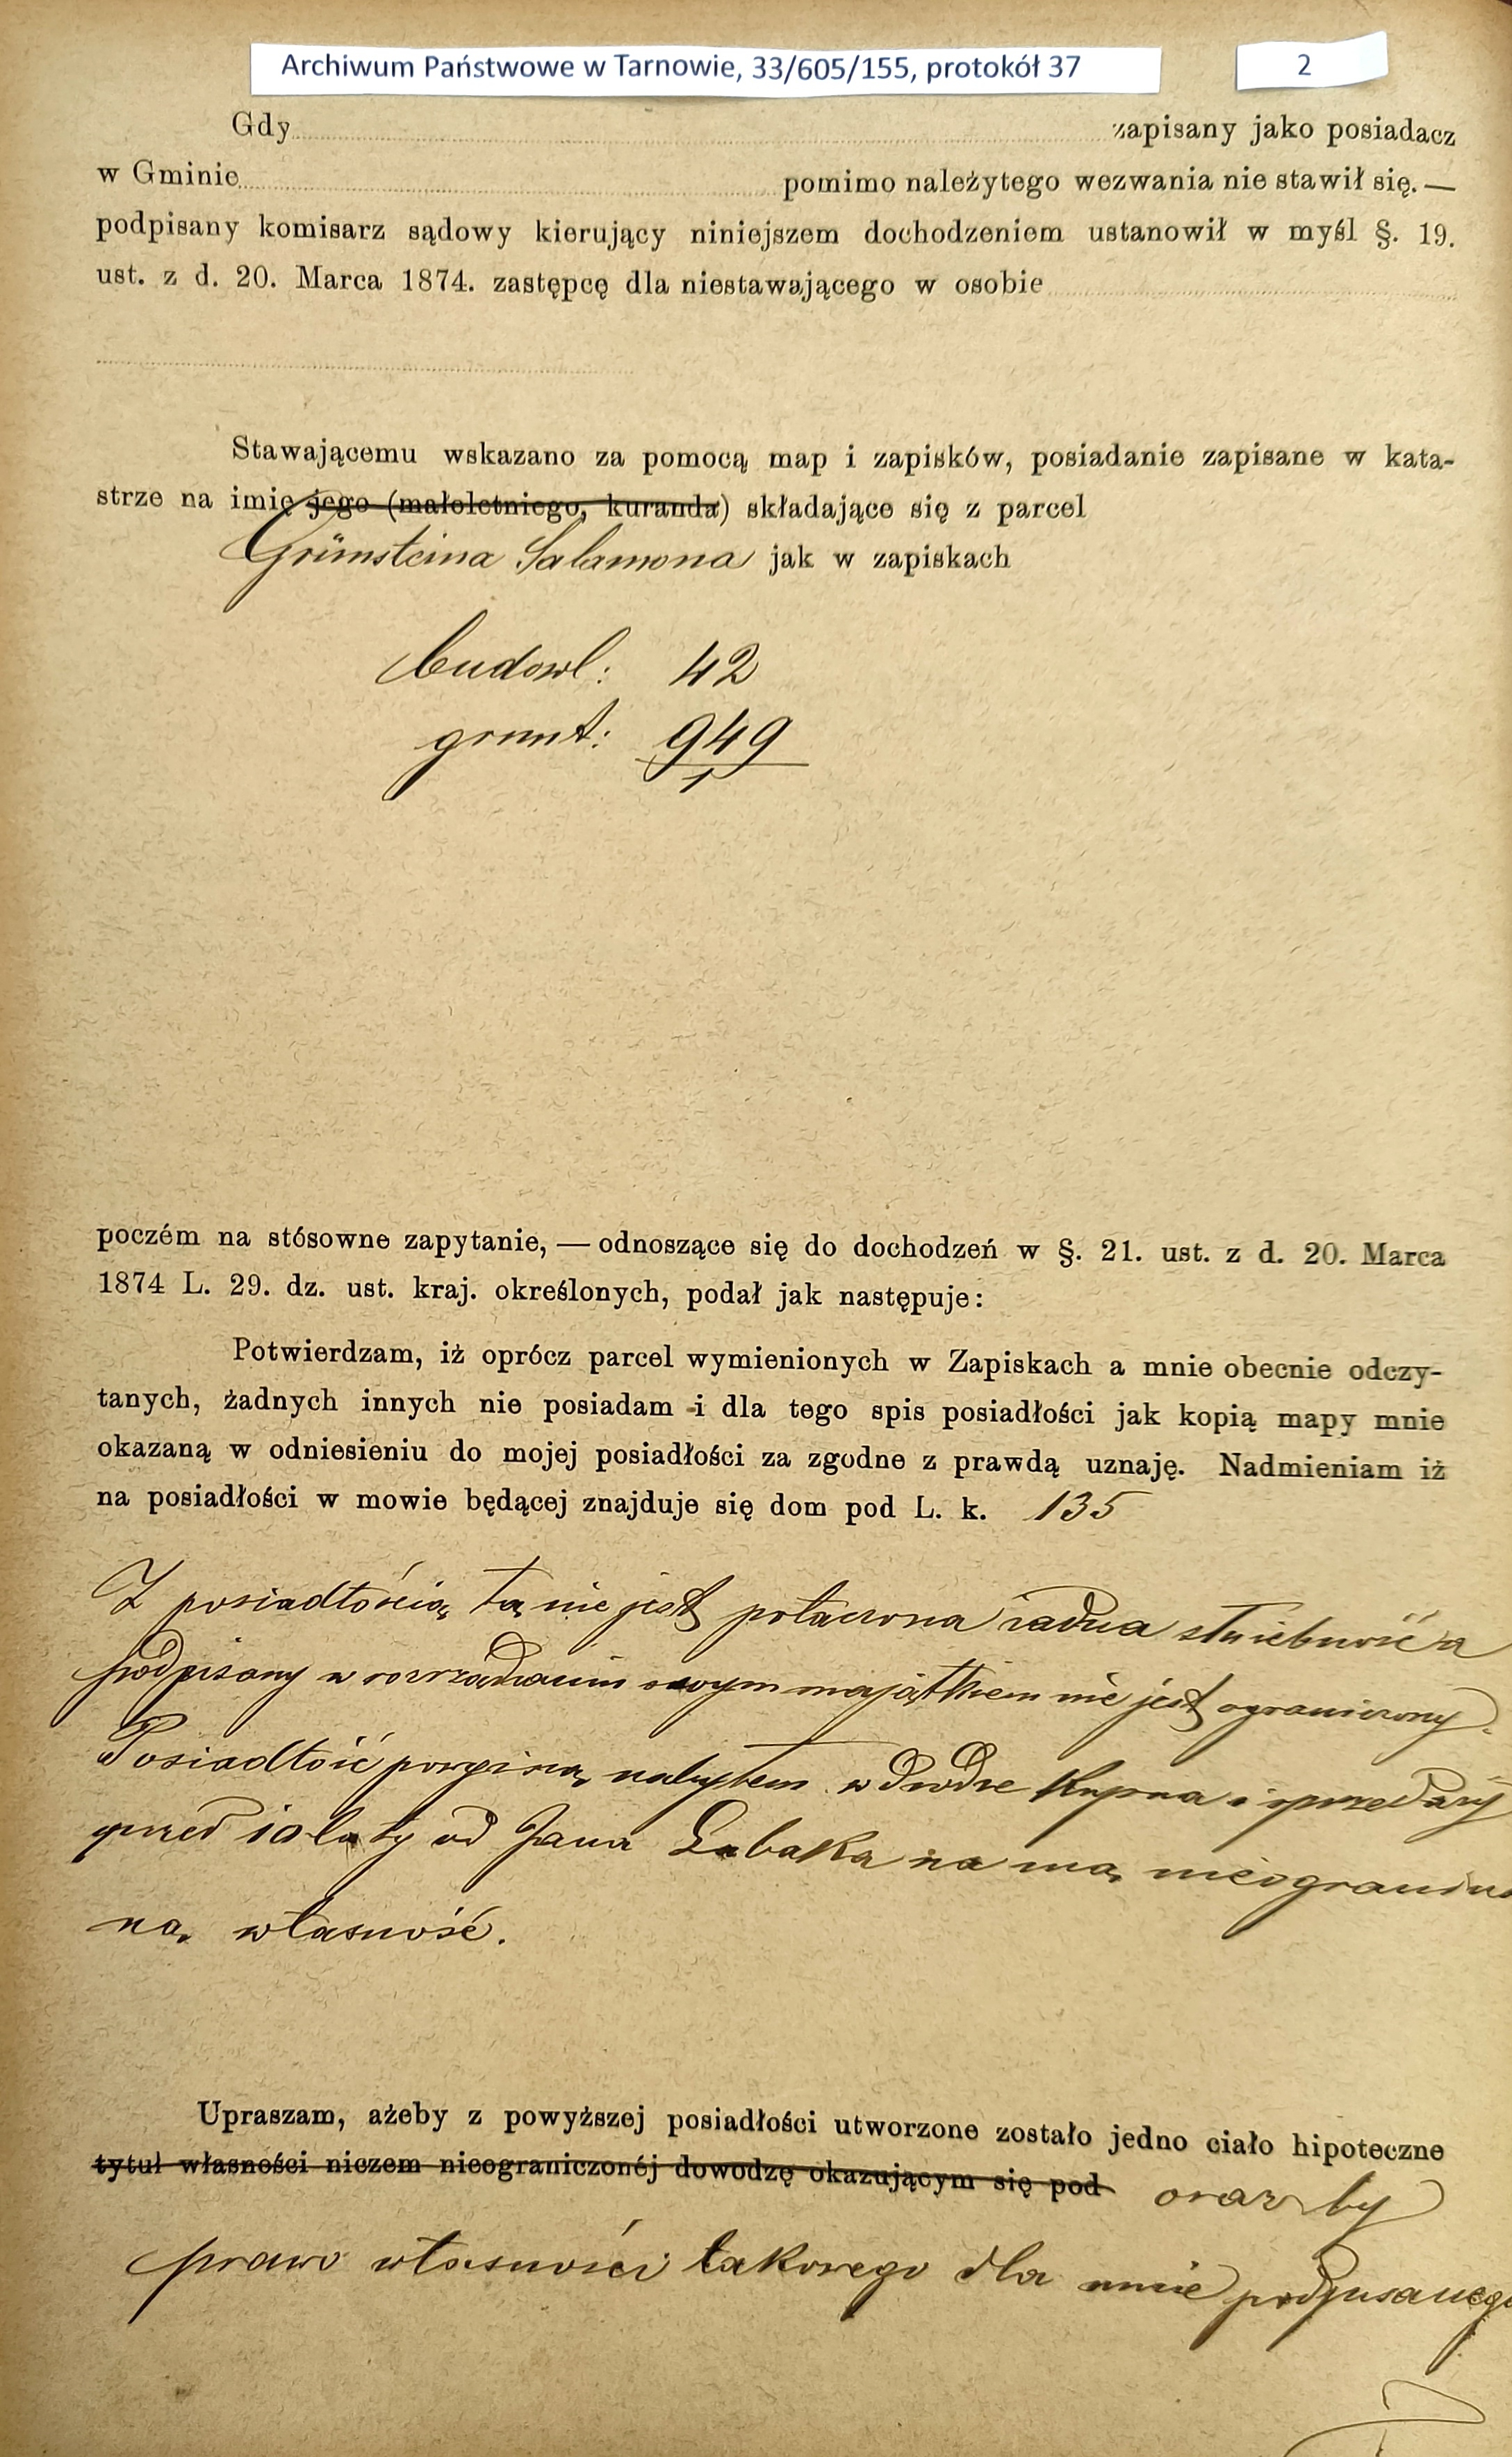 Archiwum Państwowe w Tarnowie, 33/605/155, protokół 37
2
Gdy zapisany jako posiadacz
w Gminie pomimo należytego wezwania nie stawił się. —
podpisany komisarz sądowy kierujący niniejszem dochodzeniem ustanowił w myśl §. 19.
ust. z d. 20. Marca 1874. zastępcę dla niestawającego w osobie
Stawającemu wskazano za pomocą map i zapisków, posiadanie zapisane w kata-
strze na imię jego (małoletniego, kuranda) składające się z parcel
Grünsteina Salamona jak w zapiskach
budowl: 42
grunt: 949
1
poczém na stósowne zapytanie, — odnoszące się do dochodzeń w §. 21. ust. z d. 20. Marca
1874 L. 29. dz. ust. kraj. określonych, podał jak następuje:
Potwierdzam, iż oprócz parcel wymienionych w Zapiskach a mnie obecnie odczy-
tanych, żadnych innych nie posiadam i dla tego spis posiadłości jak kopią mapy mnie
okazaną w odniesieniu do mojej posiadłości za zgodne z prawdą uznaję. Nadmieniam iż
na posiadłości w mowie będącej znajduje się dom pod L. k. 135
Z posiadłością tą nie jest połączona żadna służebność a
podpisany w rozrządzaniu swoym majątkiem nie jest ograniczony.
Posiadłość powyższą nabyłem w drodze kupna i sprzedaży
przed 10 laty od Jana Labaka na mą nieogranicz
ną własność.
Upraszam, ażeby z powyższej posiadłości utworzone zostało jedno ciało hipoteczne
tytuł własności niczem nieograniczonéj dowodzę okazującym się pod oraz by
prawo własności takowego dla mnie podpisanego